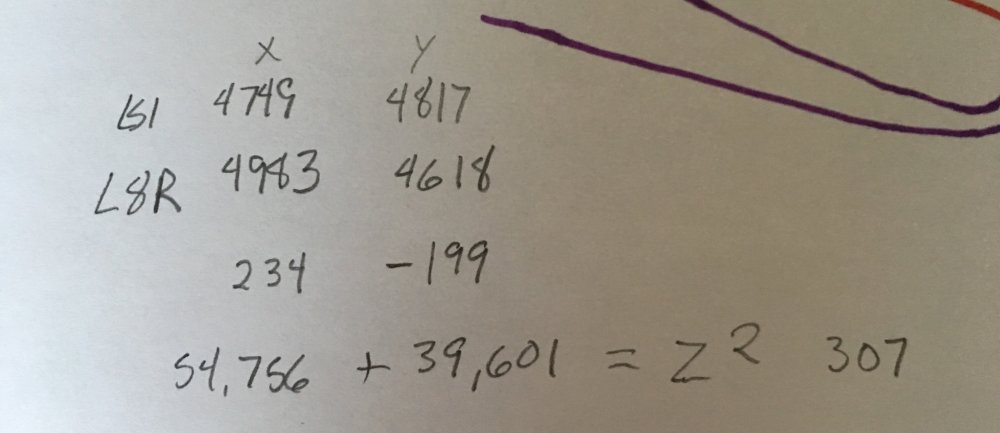 X Y
1SI 4749 4817
L8R 4983 4618
234 -199
54,756 + 39,601 = Z² 307